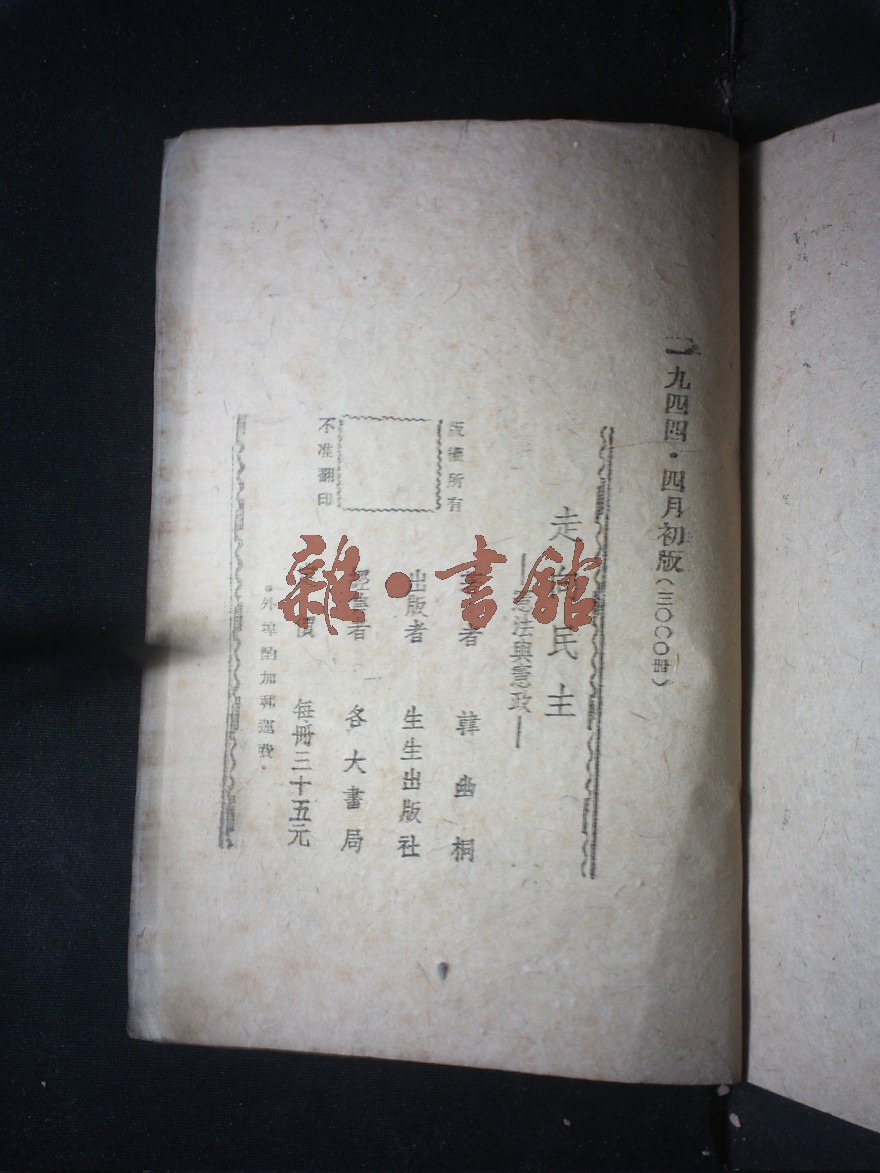 一九四四·四月初版(三〇〇〇冊)
走 民主
—憲法與憲政—
版權所有
不准翻印
者 韓幽桐
出版者 生生出版社
經售者 各大書局
價 每冊三十五元
·外埠酌加郵運費·
雜·書館